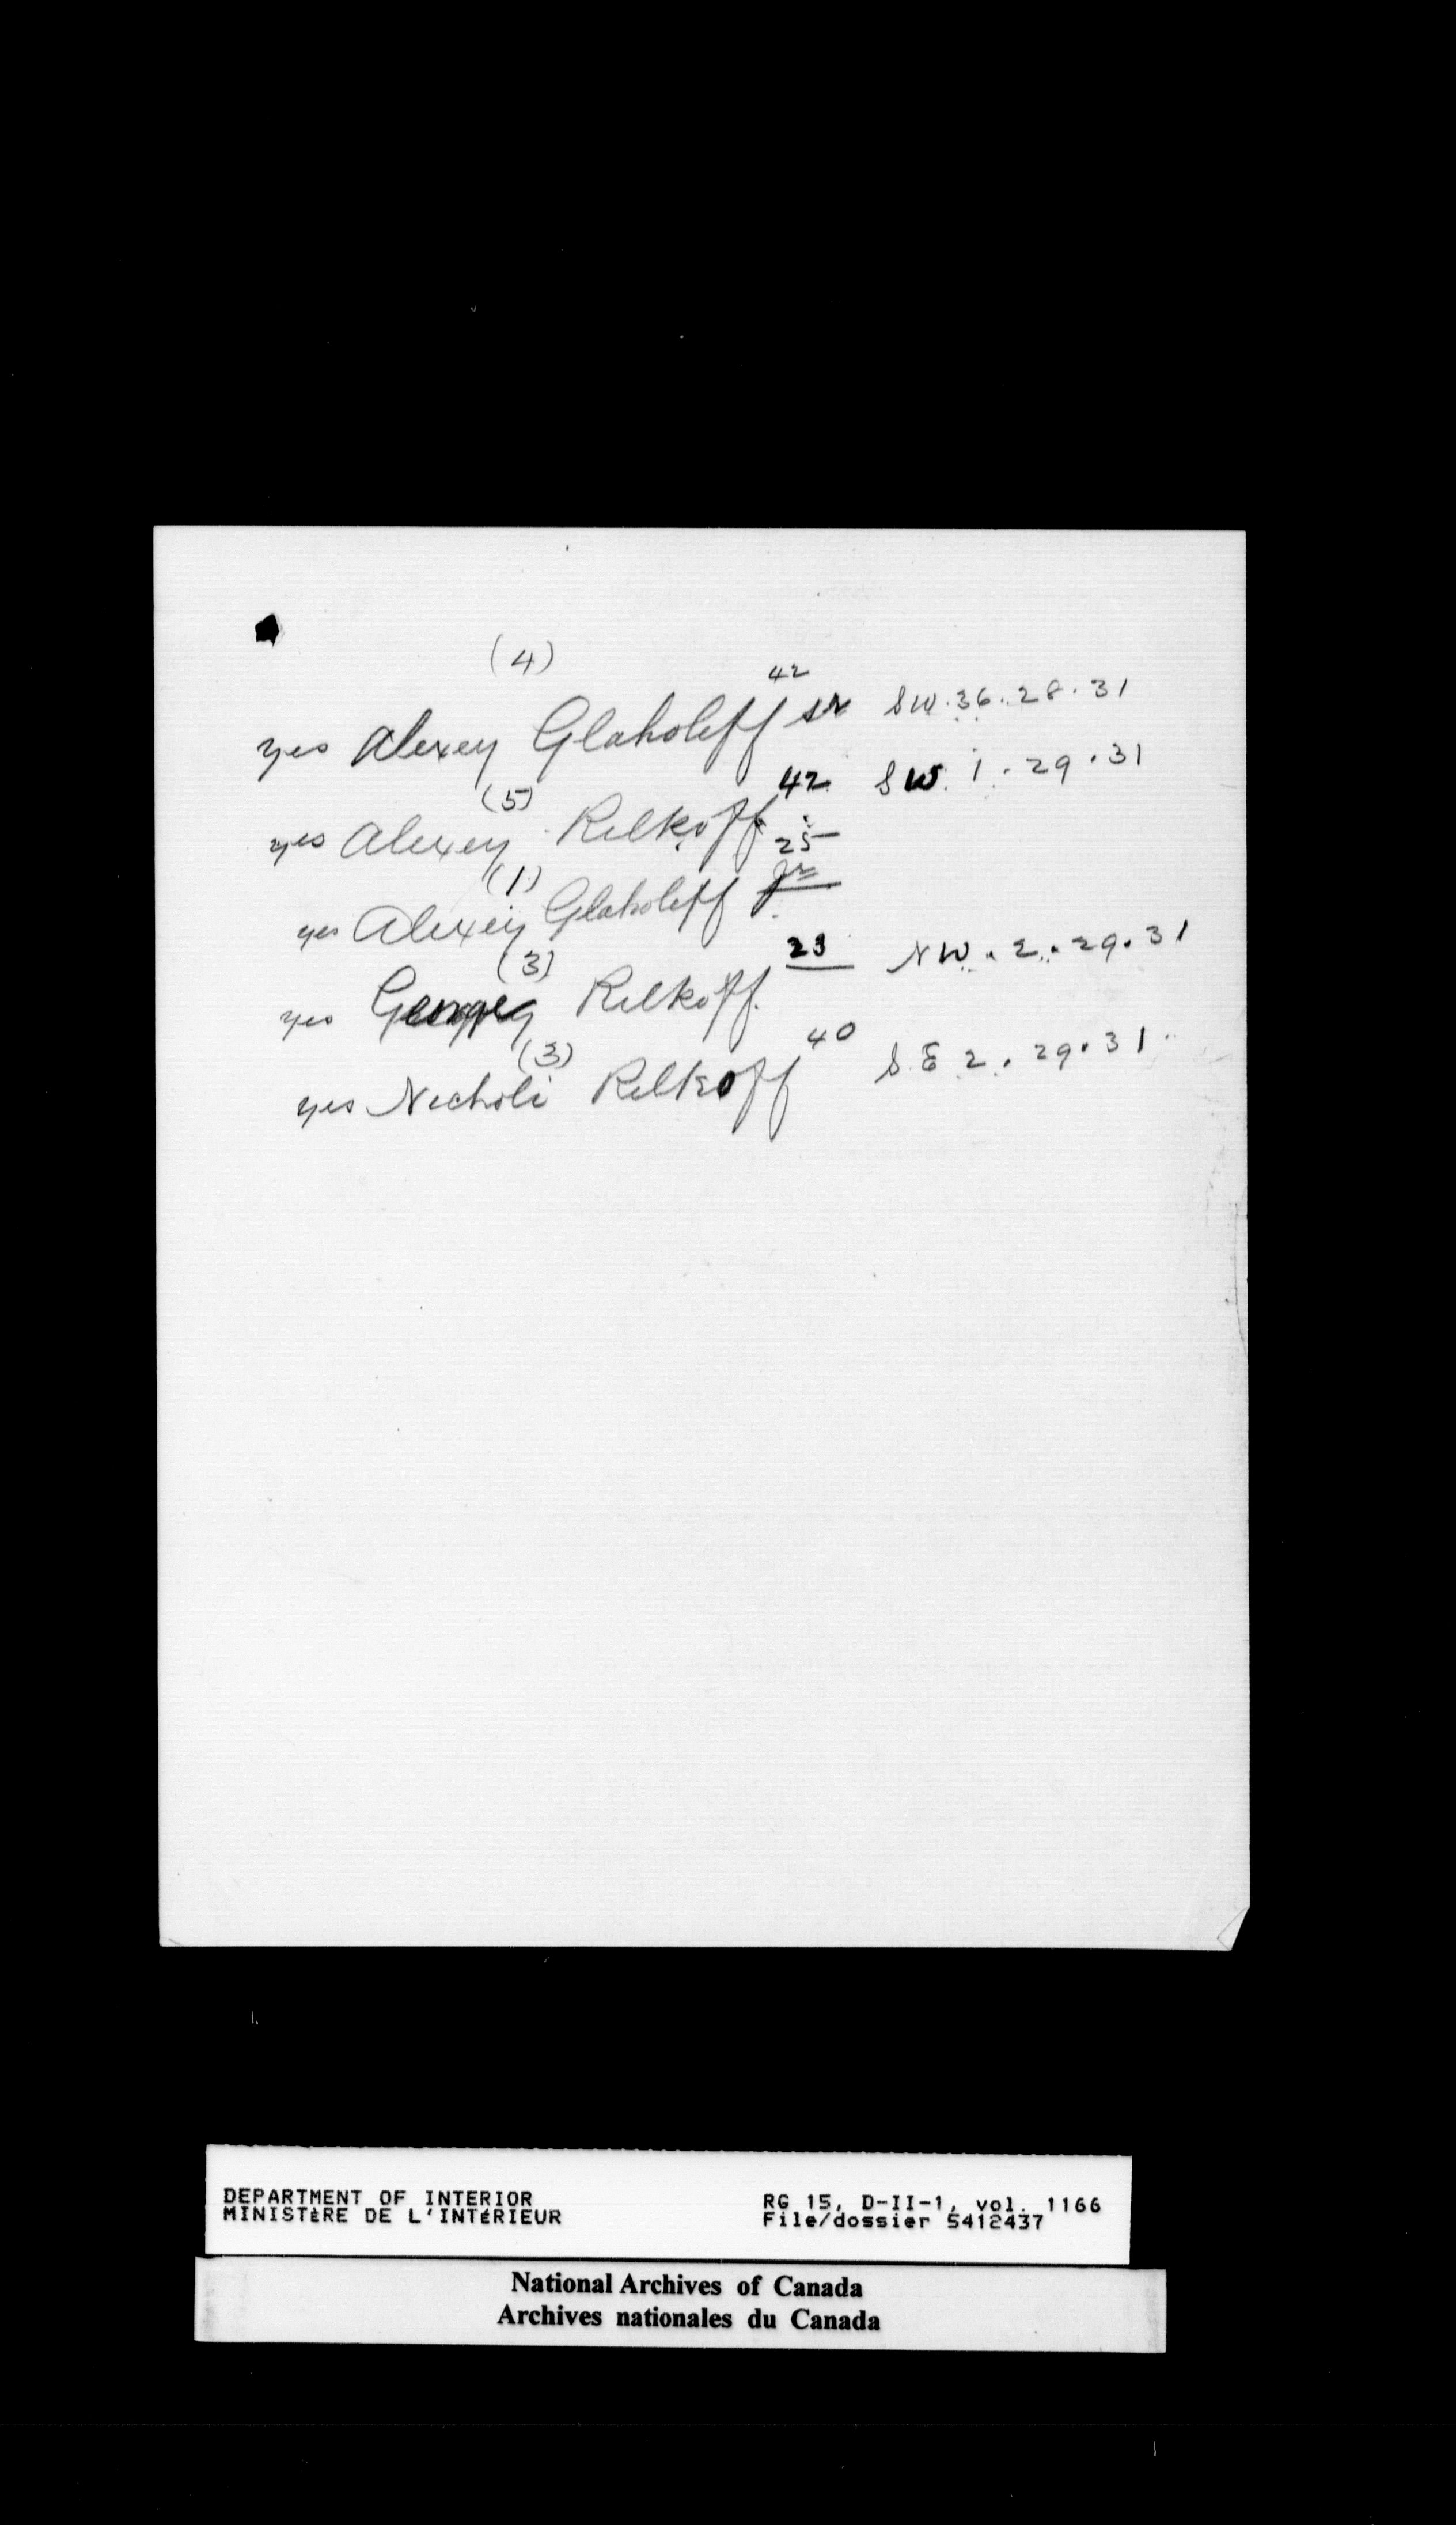 (4) 42
yes Alexey Glaholeff sr SW. 36. 28. 31
(5) 42 SW. 1. 29. 31
yes Alexey Relkoff
(1) 25
yes Alexey Glaholeff jr
(3) 23 NW. 2. 29. 31
yes Relkoff.
(3) 40 S. E 2. 29. 31.
yes Necholi Relkoff
DEPARTMENT OF INTERIOR RG 15, D-II-1, vol. 1166
MINISTÈRE DE L'INTÉRIEUR File/dossier 5412437
National Archives of Canada
Archives nationales du Canada